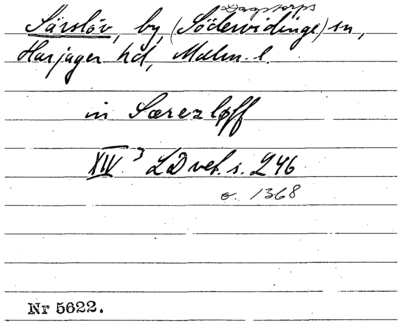 Dagstorps
Särslöv, by (Södervidinge) sn,
Harjager hd, Malm. l.
in Særezløff
XIV 3 LD vet. s. 246
c. 1368
Nr 5622.